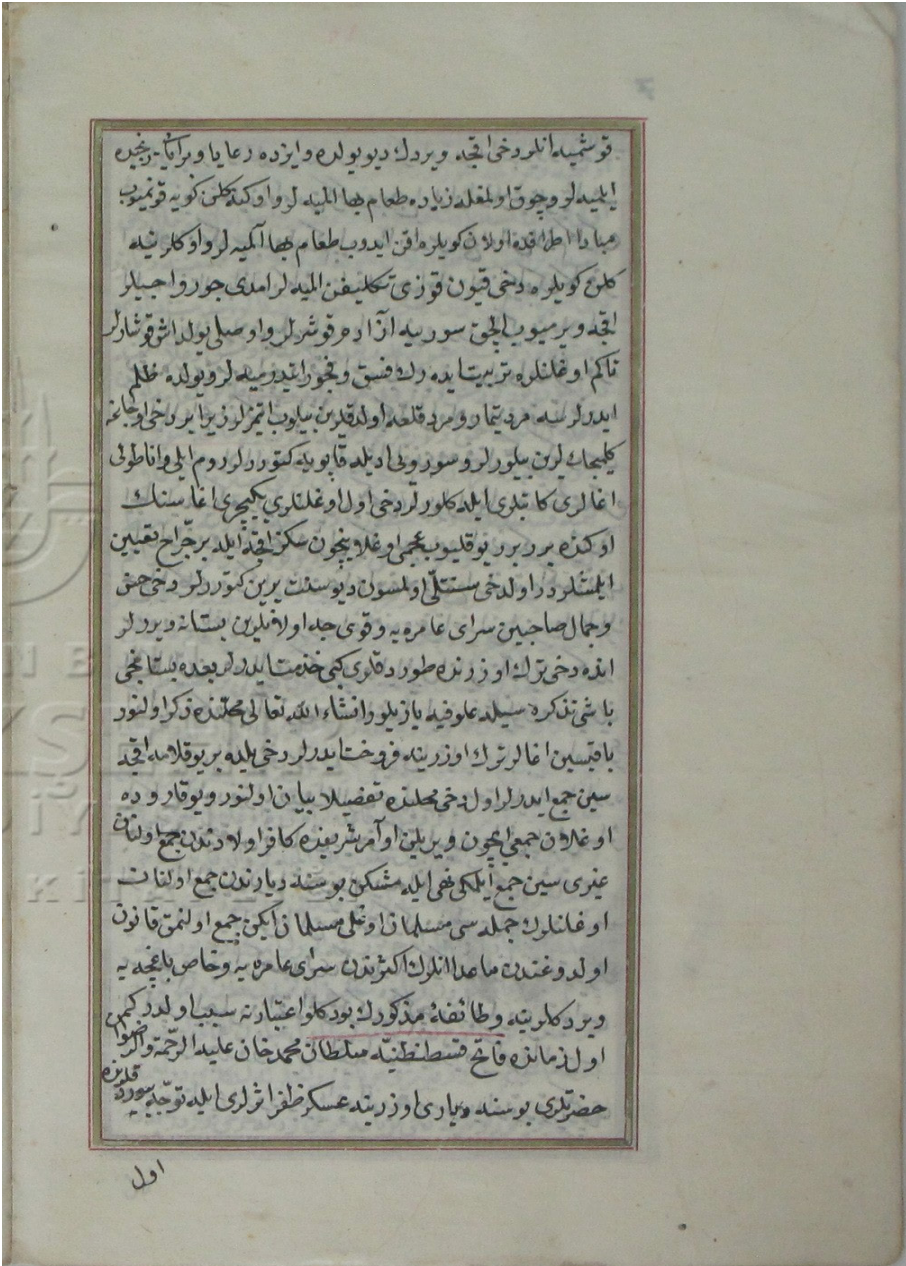 قوشمیه انلر دخی اقچه ویردك دیو یولده وایزده رعایا وبرایایی رنجیده
ایلمیه لر و چوق اولمغله زیاده طعام بها المیه لر و اوكنه كلن كویه قونمیوب
مبادا اطرافده اولان كویلره اقن ایدوب طعام بها المیه لر و اوكلرینه
كلن كویلره دخی قیون قوزی تكلیفن المیه لر امدی جور واجیلر
اقچه ویرمیوب انجق سوریه آزاده قوشرلر و اوصلی یولداش قوشارلر
تاكم اوغلنلره تربیت ایده رك فسق و فجور ایتدرمیه لر و یولده ظلم
ایدرلرسه مرد تیمار و مرد قلعه اولدقلرین بیلوب ایتمزلر زیرا بر دخی اوجاغه
كلمیجكلرین بیلورلر و سوریی ادیله قاپویه كتوررلر روم ایلی و اناطولی
اغالری كاتبلری ایله كلورلر دخی اول اوغلنلری یكیچری اغاسنك
اوكنده برر برر یوقلیوب عجمی اوغلانیچون سكز اقچه ایله بر جراح تعیین
ایلمشلردر اولدخی مستثنی اولمسون دیو سنت یرین كتوررلر دخی حسن
وجمال صاحبین سرای عامره یه و قوی جه اولانلرین بستانه ویررلر
انده دخی ترك اوزرنده طوردقلری كبی خذمت ایدرلر بعده بستانجی
باشی تذكره سیله علوفیه یازیلور انشاء الله تعالی محلنده ذكر اولنور
باقیسین اغالر ترك اوزرینه فروخت ایدرلر دخی یلده بر یوقلامه اقچه
سین جمع ایدرلر اول دخی محلنده تفصیلا بیان اولنور و یوقاروده
اوغلان جمعی ایچون ویریلن اوامر شریفده كافر اولادندن جمع اولنان
غیری سین جمع ایلمكی نهی ایله مشكن بوسنه دیارندن جمع اولنان
اوغلنلرك جمله سی مسلمان اوغلی مسلمان ایكن جمع اولنمق قانون
اولدوغندن ماعدا انلرك اكثرندن سرای عامره یه و خاص باغچه یه
ویردكلرینه و طائفهٔ مذكورك بودكلو اعتبارنه سبب اولدركمس
اول زمانده فاتح قسطنطنیه سلطان محمد خان علیه الرحمة والرضوان
حضرتلری بوسنه دیاری اوزرینه عسكر ظفر اثرلری ایله توجه بیوردقلرنده
اول